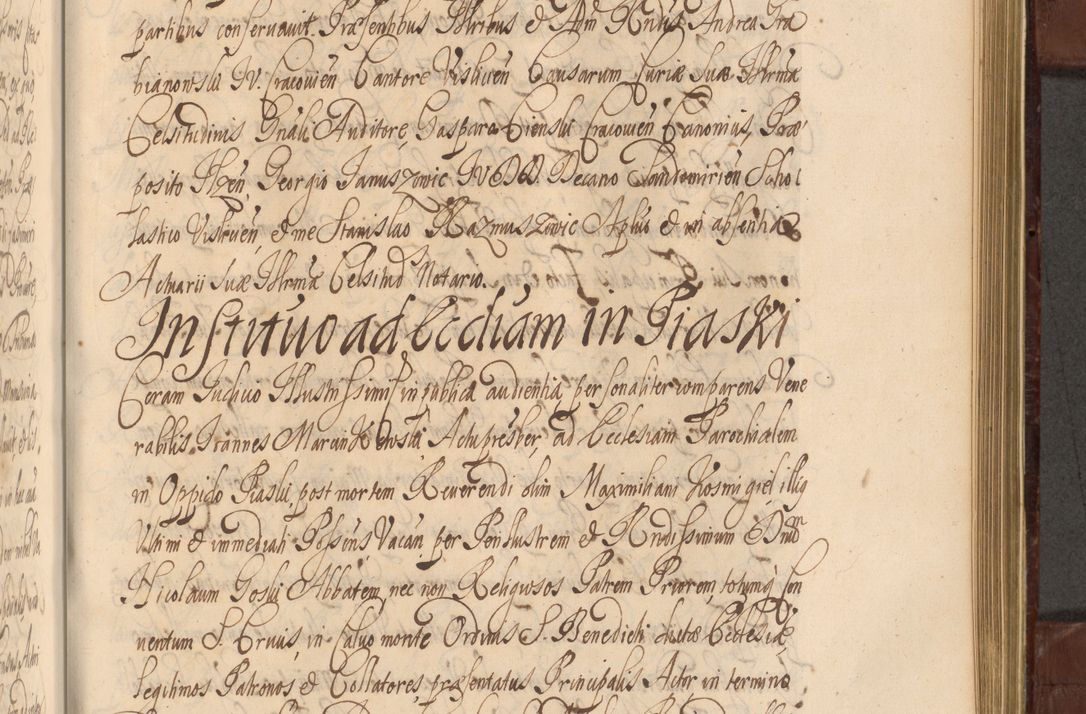 partibus conservavit. Præsentibus Illribus & Adm Rndis Andrea Gra
bianowski IV. Cracovien Cantore Vislicien Causarum Curiæ Suæ Illrmæ
Celsitudinis Gnali Auditore, Gaspare Cienski Cracovien Canonicis, Præ
posito Ilzen, Georgio Januszowic IVDD Decano Sandomirien Schol
lastico Vislicien, & me Stanislao Kazmuszowic Aplico & in absentia
Actuarii Suæ Illrmæ Celsitud Notario.
Institutio ad Eccliam in Piaski
Coram Iudicio Illustrissimi in publica audientia personaliter comparens Vene
rabilis Ioannes Marcin Kowski, Actu presber, ad Ecclesiam Parochialem
in Oppido Piaski, post mortem Reverendi olim Maximiliani Kosmigiel, illiq
Ultimi & immediati Possens Vacan per Perillustrem & Rndissimum Dnm
Nicolaum Goski Abbatem, nec non Religiosos Patrem Priorem, totumq Con
ventum S. Crucis, in Calvo monte Ordinis S. Benedicti dictæ Ecclesiæ,
legitimos Patronos & Collatores, præsentatus Principalis Actor in termino